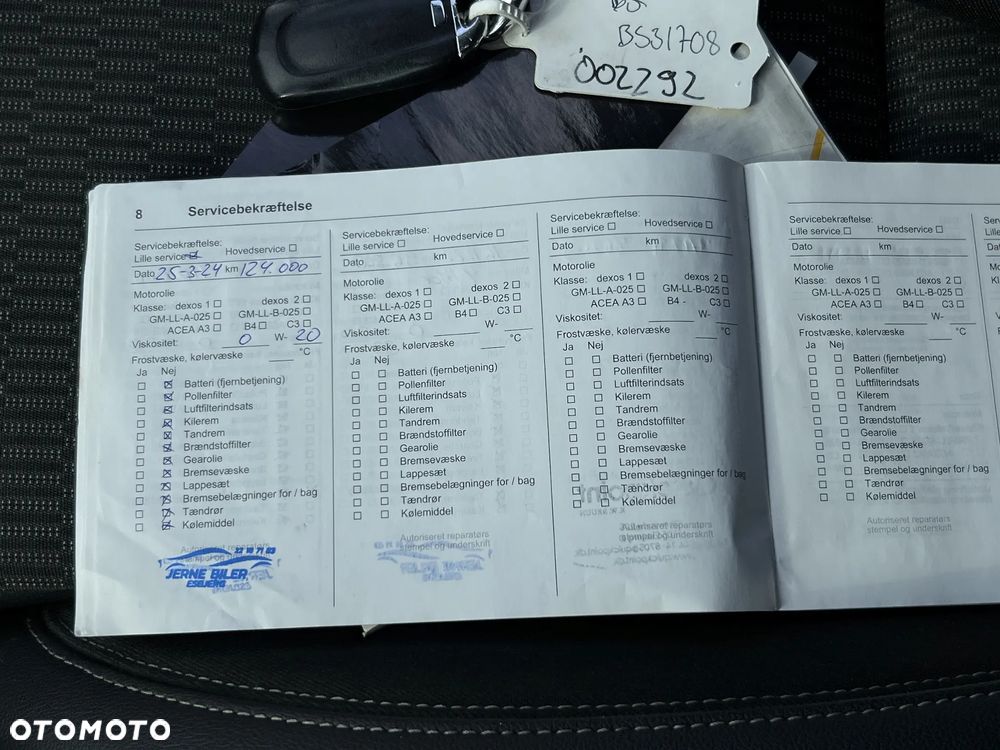 BS31708
002292
8 Servicebekræftelse
Servicebekræftelse:
Lille service ☒ Hovedservice ☐
Dato 25-3-24 km 124.000
Motorolie
Klasse: dexos 1 ☐ dexos 2 ☐
GM-LL-A-025 ☐ GM-LL-B-025 ☐
ACEA A3 ☐ B4 ☐ C3 ☐
Viskositet: 0 W- 20
Frostvæske, kølervæske ____ °C
Ja Nej
☐ ☒ Batteri (fjernbetjening)
☐ ☒ Pollenfilter
☐ ☒ Luftfilterindsats
☐ ☒ Kilerem
☐ ☒ Tandrem
☐ ☒ Brændstoffilter
☐ ☒ Gearolie
☐ ☒ Bremsevæske
☐ ☒ Lappesæt
☐ ☒ Bremsebelægninger for / bag
☐ ☒ Tændrør
☐ ☒ Kølemiddel
Autoriseret reparatørs
JERNE BILER
ESBJERG
Servicebekræftelse:
Lille service ☐ Hovedservice ☐
Dato km
Motorolie
Klasse: dexos 1 ☐ dexos 2 ☐
GM-LL-A-025 ☐ GM-LL-B-025 ☐
ACEA A3 ☐ B4 ☐ C3 ☐
Viskositet: ____ W- ____
Frostvæske, kølervæske ____ °C
Ja Nej
☐ ☐ Batteri (fjernbetjening)
☐ ☐ Pollenfilter
☐ ☐ Luftfilterindsats
☐ ☐ Kilerem
☐ ☐ Tandrem
☐ ☐ Brændstoffilter
☐ ☐ Gearolie
☐ ☐ Bremsevæske
☐ ☐ Lappesæt
☐ ☐ Bremsebelægninger for / bag
☐ ☐ Tændrør
☐ ☐ Kølemiddel
Autoriseret reparatørs
stempel og underskrift
Servicebekræftelse:
Lille service ☐ Hovedservice ☐
Dato km
Motorolie
Klasse: dexos 1 ☐ dexos 2 ☐
GM-LL-A-025 ☐ GM-LL-B-025 ☐
ACEA A3 ☐ B4 - C3 ☐
Viskositet: ____ W- ____
Frostvæske, kølervæske ____ °C
Ja Nej
☐ ☐ Batteri (fjernbetjening)
☐ ☐ Pollenfilter
☐ ☐ Luftfilterindsats
☐ ☐ Kilerem
☐ ☐ Tandrem
☐ ☐ Brændstoffilter
☐ ☐ Gearolie
☐ ☐ Bremsevæske
☐ ☐ Lappesæt
☐ ☐ Bremsebelægninger for / bag
☐ ☐ Tændrør
☐ ☐ Kølemiddel
Autoriseret reparatørs
stempel og underskrift
Servicebekræftelse:
Lille service ☐ Hovedservice ☐
Dato km
Motorolie
Klasse: dexos 1 ☐ dexos 2 ☐
GM-LL-A-025 ☐ GM-LL-B-025 ☐
ACEA A3 ☐ B4 ☐ C3 ☐
Viskositet: ____ W- ____
Frostvæske, kølervæske ____ °C
Ja Nej
☐ ☐ Batteri (fjernbetjening)
☐ ☐ Pollenfilter
☐ ☐ Luftfilterindsats
☐ ☐ Kilerem
☐ ☐ Tandrem
☐ ☐ Brændstoffilter
☐ ☐ Gearolie
☐ ☐ Bremsevæske
☐ ☐ Lappesæt
☐ ☐ Bremsebelægninger for / bag
☐ ☐ Tændrør
☐ ☐ Kølemiddel
Autoriseret reparatørs
stempel og underskrift
OTOMOTO